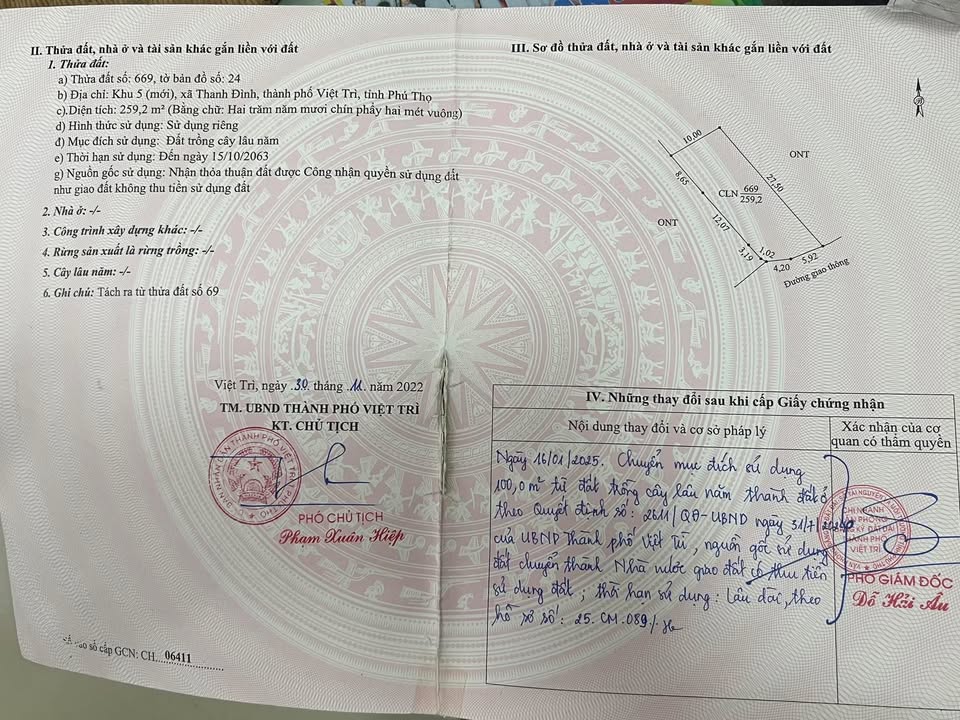 II. Thửa đất, nhà ở và tài sản khác gắn liền với đất
1. Thửa đất:
a) Thửa đất số: 669, tờ bản đồ số: 24
b) Địa chỉ: Khu 5 (mới), xã Thanh Đình, thành phố Việt Trì, tỉnh Phú Thọ
c).Diện tích: 259,2 m² (Bằng chữ: Hai trăm năm mươi chín phẩy hai mét vuông)
d) Hình thức sử dụng: Sử dụng riêng
đ) Mục đích sử dụng: Đất trồng cây lâu năm
e) Thời hạn sử dụng: Đến ngày 15/10/2063
g) Nguồn gốc sử dụng: Nhận thỏa thuận đất được Công nhận quyền sử dụng đất
như giao đất không thu tiền sử dụng đất
2. Nhà ở: -/-
3. Công trình xây dựng khác: -/-
4. Rừng sản xuất là rừng trồng: -/-
5. Cây lâu năm: -/-
6. Ghi chú: Tách ra từ thửa đất số 69
Việt Trì, ngày .30. tháng .11. năm 2022
TM. UBND THÀNH PHỐ VIỆT TRÌ
KT. CHỦ TỊCH
PHÓ CHỦ TỊCH
Phạm Xuân Hiệp
vào sổ cấp GCN: CH.... 06411
III. Sơ đồ thửa đất, nhà ở và tài sản khác gắn liền với đất
10,00
ONT
8,65
27,50
CLN 669
259,2
ONT
12,07
3,19
1,02
4,20
5,92
Đường giao thông
IV. Những thay đổi sau khi cấp Giấy chứng nhận
Nội dung thay đổi và cơ sở pháp lý
Xác nhận của cơ
quan có thẩm quyền
Ngày 16/01/2025. Chuyển mục đích sử dụng
100,0 m² từ đất trồng cây lâu năm thành đất ở
theo Quyết định số: 2611/QĐ-UBND ngày 31/7/2024
của UBND Thành phố Việt Trì, nguồn gốc sử dụng
đất chuyển thành Nhà nước giao đất có thu tiền
sử dụng đất; thời hạn sử dụng: Lâu dài, theo
hồ sơ số: 25.CM.089./.
CHI NHÁNH
VĂN PHÒNG
ĐĂNG KÝ ĐẤT ĐAI
THÀNH PHỐ
VIỆT TRÌ
PHÓ GIÁM ĐỐC
Đỗ Hải Âu